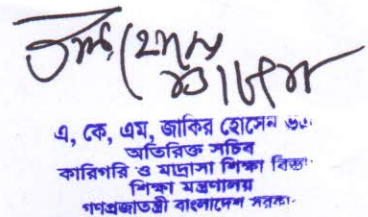 এ, কে, এম, জাকির হোসেন
অতিরিক্ত সচিব
কারিগরি ও মাদ্রাসা শিক্ষা বিভা
শিক্ষা মন্ত্রণালয়
গণপ্রজাতন্ত্রী বাংলাদেশ সরকা